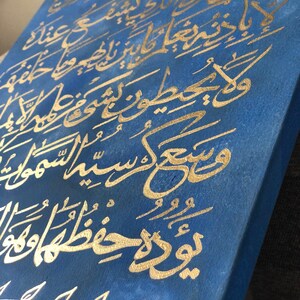 يشفع عنده
إلا بإذنه يعلم ما بين أيديهم وما خلفهم
ولا يحيطون بشيء من علمه إلا
وسع كرسيه السموات
يؤده حفظهما وهو